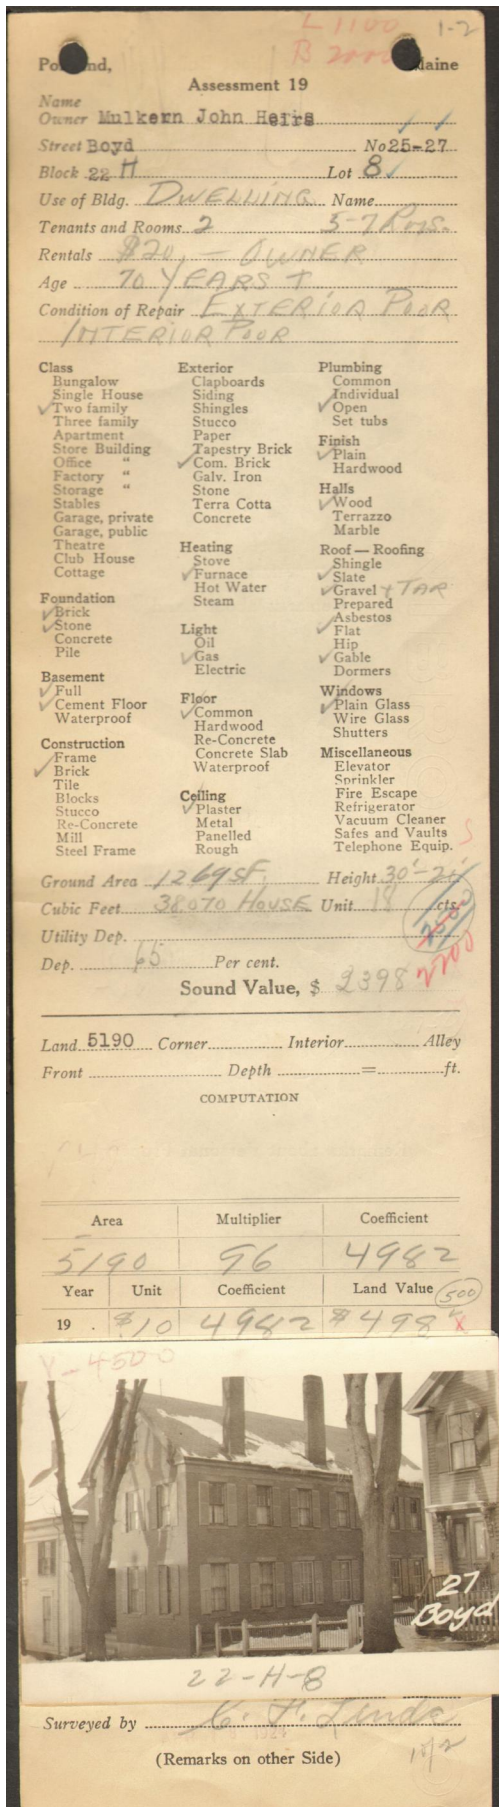 L 1100
1-2
B 2000
Portland, Maine
Assessment 19
Name
Owner Mulkern John Heirs
Street Boyd No 25-27
Block 22 H Lot 8
Use of Bldg. DWELLING Name
Tenants and Rooms 2 5-7 Rms.
Rentals $20,— OWNER
Age 70 YEARS +
Condition of Repair EXTERIOR POOR
INTERIOR POOR
Class
Bungalow
Single House
✓ Two family
Three family
Apartment
Store Building
Office "
Factory "
Storage "
Stables
Garage, private
Garage, public
Theatre
Club House
Cottage
Foundation
✓ Brick
✓ Stone
Concrete
Pile
Basement
✓ Full
✓ Cement Floor
Waterproof
Construction
Frame
✓ Brick
Tile
Blocks
Stucco
Re-Concrete
Mill
Steel Frame
Exterior
Clapboards
Siding
Shingles
Stucco
Paper
Tapestry Brick
✓ Com. Brick
Galv. Iron
Stone
Terra Cotta
Concrete
Heating
Stove
✓ Furnace
Hot Water
Steam
Light
Oil
✓ Gas
Electric
Floor
✓ Common
Hardwood
Re-Concrete
Concrete Slab
Waterproof
Ceiling
✓ Plaster
Metal
Panelled
Rough
Plumbing
Common
Individual
✓ Open
Set tubs
Finish
✓ Plain
Hardwood
Halls
✓ Wood
Terrazzo
Marble
Roof — Roofing
Shingle
✓ Slate
✓ Gravel + TAR
Prepared
Asbestos
✓ Flat
Hip
✓ Gable
Dormers
Windows
✓ Plain Glass
Wire Glass
Shutters
Miscellaneous
Elevator
Sprinkler
Fire Escape
Refrigerator
Vacuum Cleaner
Safes and Vaults
Telephone Equip.
Ground Area 1269 SF. Height 30'-21'
Cubic Feet 38070 HOUSE Unit 18 cts.
Utility Dep.
Dep. 65 Per cent.
2200
Sound Value, $ 2398
Land 5190 Corner Interior Alley
Front Depth = ft.
COMPUTATION
Area Multiplier Coefficient
5190 96 4982
Year Unit Coefficient Land Value 500
19 . $.10 4982 $498
V-4500
27
Boyd
22-H-8
Surveyed by
(Remarks on other Side)
1 of 2